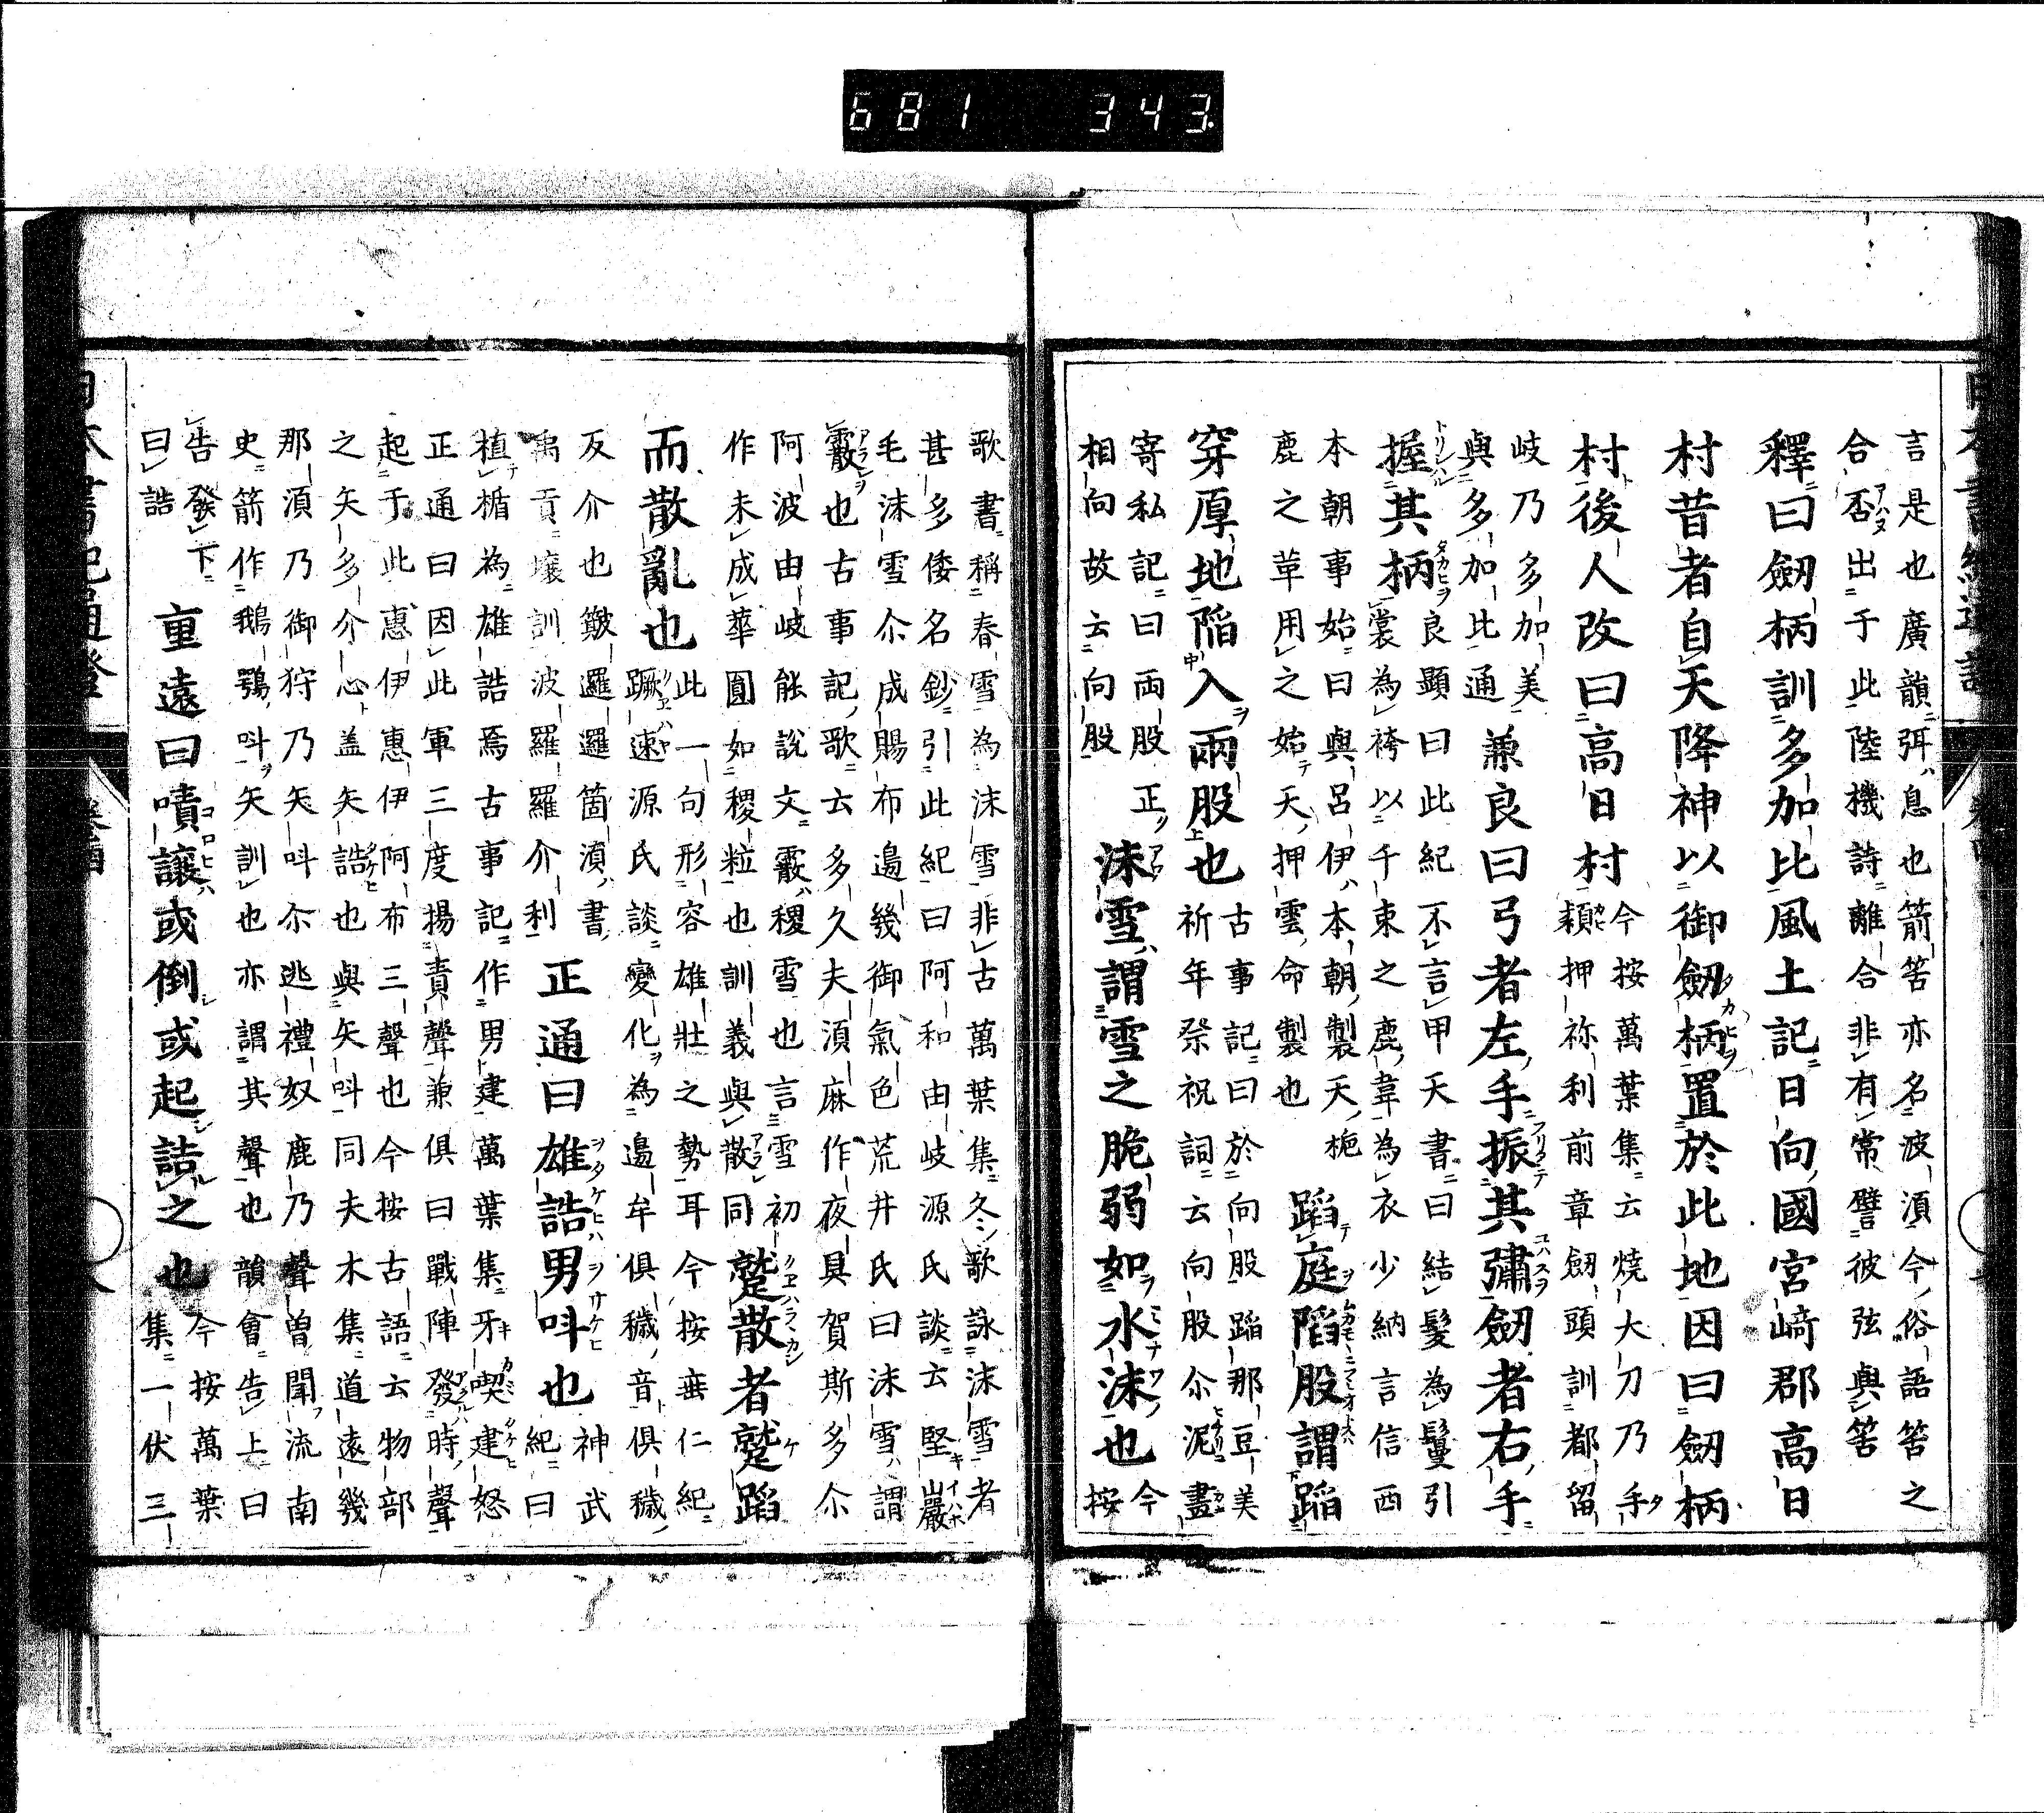 681 343
言是也廣韻弭息也箭筈亦名波湏今俗語筈之
合否出于此陸機詩離合非有常譬彼弦與筈
釋曰劒柄訓多加比風土記曰向國宮﨑郡高日
村昔者自天降神以御劒柄置於此地因曰劒柄
村後人改曰高日村
今按萬葉集云燒大刀乃手
頬押祢利前章劒頭訓都留
岐乃多加美
與多加比通
兼良曰弓者左手振其彇劒者右手
握其柄
良顯曰此紀不言甲天書曰結髮為鬘引
裳為袴以千束之鹿韋為衣少納言信西
本朝事始曰與呂伊本朝製天桅
鹿之革用之始天押雲命製也
蹈庭陷股謂蹈
穿厚地陷入兩股也
古事記曰於向股蹈那豆美
祈年祭祝詞云向股尒泥畫
寄私記曰両股正
相向故云向股
沫雪謂雪之脆弱如水沫也
今
按
歌書稱春雪為沫雪非古萬葉集冬歌詠沫雪者
甚多倭名鈔引此紀曰阿和由岐源氏談云堅山巖
毛沫雪尒成賜布邉幾御氣色荒井氏曰沫雪謂
霰也古事記歌云多久夫湏麻作夜具賀斯多尒
阿波由岐能說文霰稷雪也言雪初
作未成華圓如稷粒也訓義與散同
蹴散者蹴蹈
而散亂也
此一句形容雄壯之勢耳今按垂仁紀
蹶速源氏談變化為邉牟俱穢音俱穢
反介也皺邏邏箇湏書
禹貢壤訓波羅羅介利
正通曰雄誥男叫也
神武
紀曰
植楯為雄誥焉古事記作男建萬葉集牙喫建怒
正通曰因此軍三度揚責聲兼俱曰戰陣發時聲
起于此惠伊惠伊阿布三聲也今按古語云物部
之矢多介心盖矢誥也與矢叫同夫木集道遠幾
那湏乃御狩乃矢叫尒逃禮奴鹿乃聲曽聞流南
史箭作鵝鴞叫矢訓也亦謂其聲也韻會告上曰
告發下
曰誥
重遠曰嘖譲或倒或起詰之也
今按萬葉
集一伏三